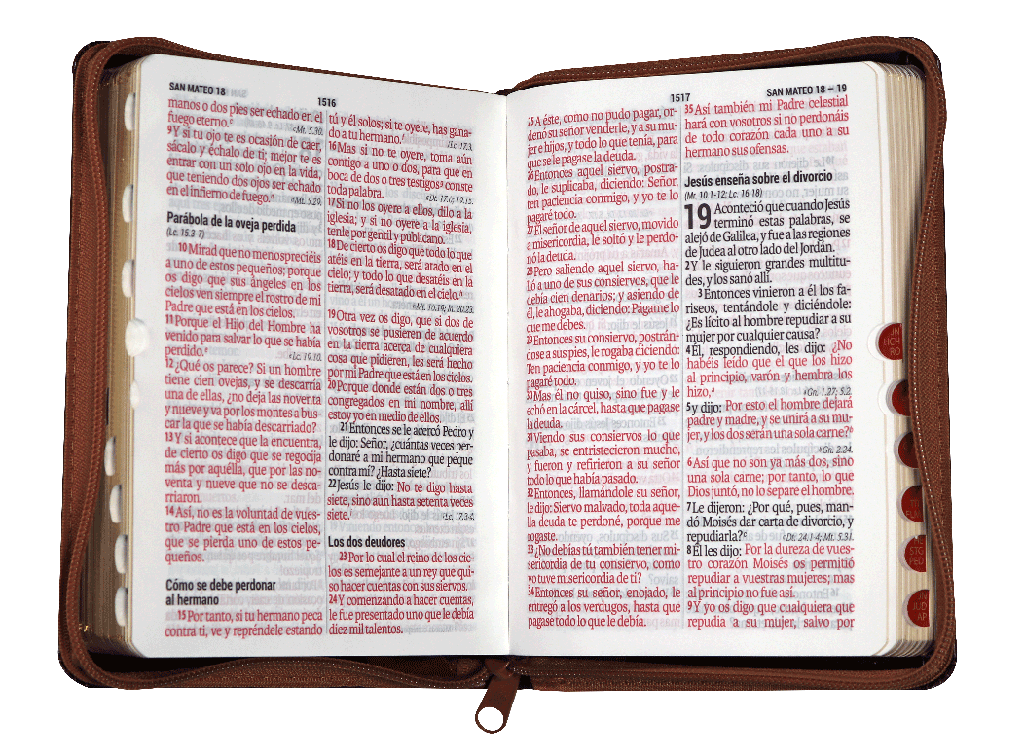 SAN MATEO 18
1516
manos o dos pies ser echado en el
fuego eterno.
Mt. 5.30.
9 Y si tu ojo te es ocasión de caer,
sácalo y échalo de ti; mejor te es
entrar con un solo ojo en la vida,
que teniendo dos ojos ser echado
en el infierno de fuego.
Mt. 5.29.
Parábola de la oveja perdida
(Lc. 15.3-7)
10 Mirad que no menospreciéis
a uno de estos pequeños; porque
os digo que sus ángeles en los
cielos ven siempre el rostro de mi
Padre que está en los cielos.
11 Porque el Hijo del Hombre ha
venido para salvar lo que se había
perdido.
Lc. 19.10.
12 ¿Qué os parece? Si un hombre
tiene cien ovejas, y se descarría
una de ellas, ¿no deja las noventa
y nueve y va por los montes a bus-
car la que se había descarriado?
13 Y si acontece que la encuentra,
de cierto os digo que se regocija
más por aquélla, que por las no-
venta y nueve que no se desca-
rriaron.
14 Así, no es la voluntad de vues-
tro Padre que está en los cielos,
que se pierda uno de estos pe-
queños.
Cómo se debe perdonar
al hermano
15 Por tanto, si tu hermano peca
contra ti, ve y repréndele estando
tú y él solos; si te oyere, has gana-
do a tu hermano.
Lc. 17.3.
16 Mas si no te oyere, toma aún
contigo a uno o dos, para que en
boca de dos o tres testigos conste
toda palabra.
Dt. 17.6; 19.15.
17 Si no los oyere a ellos, dilo a la
iglesia; y si no oyere a la iglesia,
tenle por gentil y publicano.
18 De cierto os digo que todo lo que
atéis en la tierra, será atado en el
cielo; y todo lo que desatéis en la
tierra, será desatado en el cielo.
Mt. 16.19; Jn. 20.23.
19 Otra vez os digo, que si dos de
vosotros se pusieren de acuerdo
en la tierra acerca de cualquiera
cosa que pidieren, les será hecho
por mi Padre que está en los cielos.
20 Porque donde están dos o tres
congregados en mi nombre, allí
estoy yo en medio de ellos.
21 Entonces se le acercó Pedro y
le dijo: Señor, ¿cuántas veces per-
donaré a mi hermano que peque
contra mí? ¿Hasta siete?
22 Jesús le dijo: No te digo hasta
siete, sino aun hasta setenta veces
siete.
Lc. 17.3-4.
Los dos deudores
23 Por lo cual el reino de los cie-
los es semejante a un rey que qui-
so hacer cuentas con sus siervos.
24 Y comenzando a hacer cuentas,
le fue presentado uno que le debía
diez mil talentos.
1517
SAN MATEO 18 – 19
25 A éste, como no pudo pagar, or-
denó su señor venderle, y a su mu-
jer e hijos, y todo lo que tenía, para
que se le pagase la deuda.
26 Entonces aquel siervo, postra-
do, le suplicaba, diciendo: Señor,
ten paciencia conmigo, y yo te lo
pagaré todo.
27 El señor de aquel siervo, movido
a misericordia, le soltó y le perdo-
nó la deuda.
28 Pero saliendo aquel siervo, ha-
lló a uno de sus consiervos, que le
debía cien denarios; y asiendo de
él, le ahogaba, diciendo: Págame lo
que me debes.
29 Entonces su consiervo, postrán-
dose a sus pies, le rogaba diciendo:
Ten paciencia conmigo, y yo te lo
pagaré todo.
30 Mas él no quiso, sino fue y le
echó en la cárcel, hasta que pagase
la deuda.
31 Viendo sus consiervos lo que
pasaba, se entristecieron mucho,
y fueron y refirieron a su señor
todo lo que había pasado.
32 Entonces, llamándole su señor,
le dijo: Siervo malvado, toda aque-
lla deuda te perdoné, porque me
rogaste.
33 ¿No debías tú también tener mi-
sericordia de tu consiervo, como
yo tuve misericordia de ti?
34 Entonces su señor, enojado, le
entregó a los verdugos, hasta que
pagase todo lo que le debía.
35 Así también mi Padre celestial
hará con vosotros si no perdonáis
de todo corazón cada uno a su
hermano sus ofensas.
Jesús enseña sobre el divorcio
(Mr. 10.1-12; Lc. 16.18)
19 Aconteció que cuando Jesús
terminó estas palabras, se
alejó de Galilea, y fue a las regiones
de Judea al otro lado del Jordán.
2 Y le siguieron grandes multitu-
des, y los sanó allí.
3 Entonces vinieron a él los fa-
riseos, tentándole y diciéndole:
¿Es lícito al hombre repudiar a su
mujer por cualquier causa?
4 Él, respondiendo, les dijo: ¿No
habéis leído que el que los hizo
al principio, varón y hembra los
hizo,
Gn. 1.27; 5.2.
5 y dijo: Por esto el hombre dejará
padre y madre, y se unirá a su mu-
jer, y los dos serán una sola carne?
Gn. 2.24.
6 Así que no son ya más dos, sino
una sola carne; por tanto, lo que
Dios juntó, no lo separe el hombre.
7 Le dijeron: ¿Por qué, pues, man-
dó Moisés dar carta de divorcio, y
repudiarla?
Dt. 24.1-4; Mt. 5.31.
8 Él les dijo: Por la dureza de vues-
tro corazón Moisés os permitió
repudiar a vuestras mujeres; mas
al principio no fue así.
9 Y yo os digo que cualquiera que
repudia a su mujer, salvo por